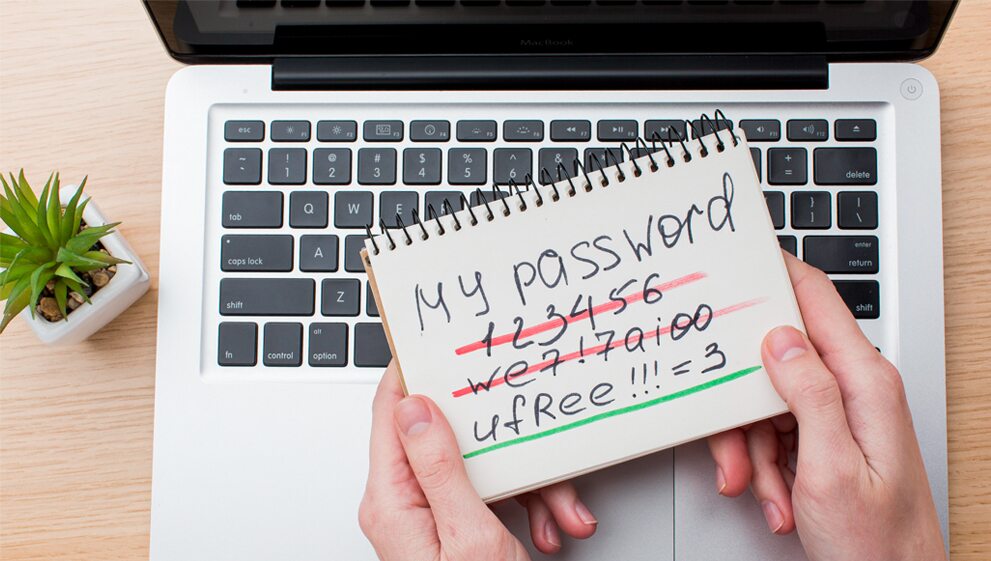 MacBook
esc F1 F2 F3 F4 F5 F6 F7 F8 F11 F12
~ ! 1 @ 2 # 3 $ 4 % 5 ^ 6 & + = delete
tab Q W E { } [ ] | \
caps lock A enter return
shift Z shift
fn control alt option
My password
123456
we7!7aioo
ufRee!!!=3